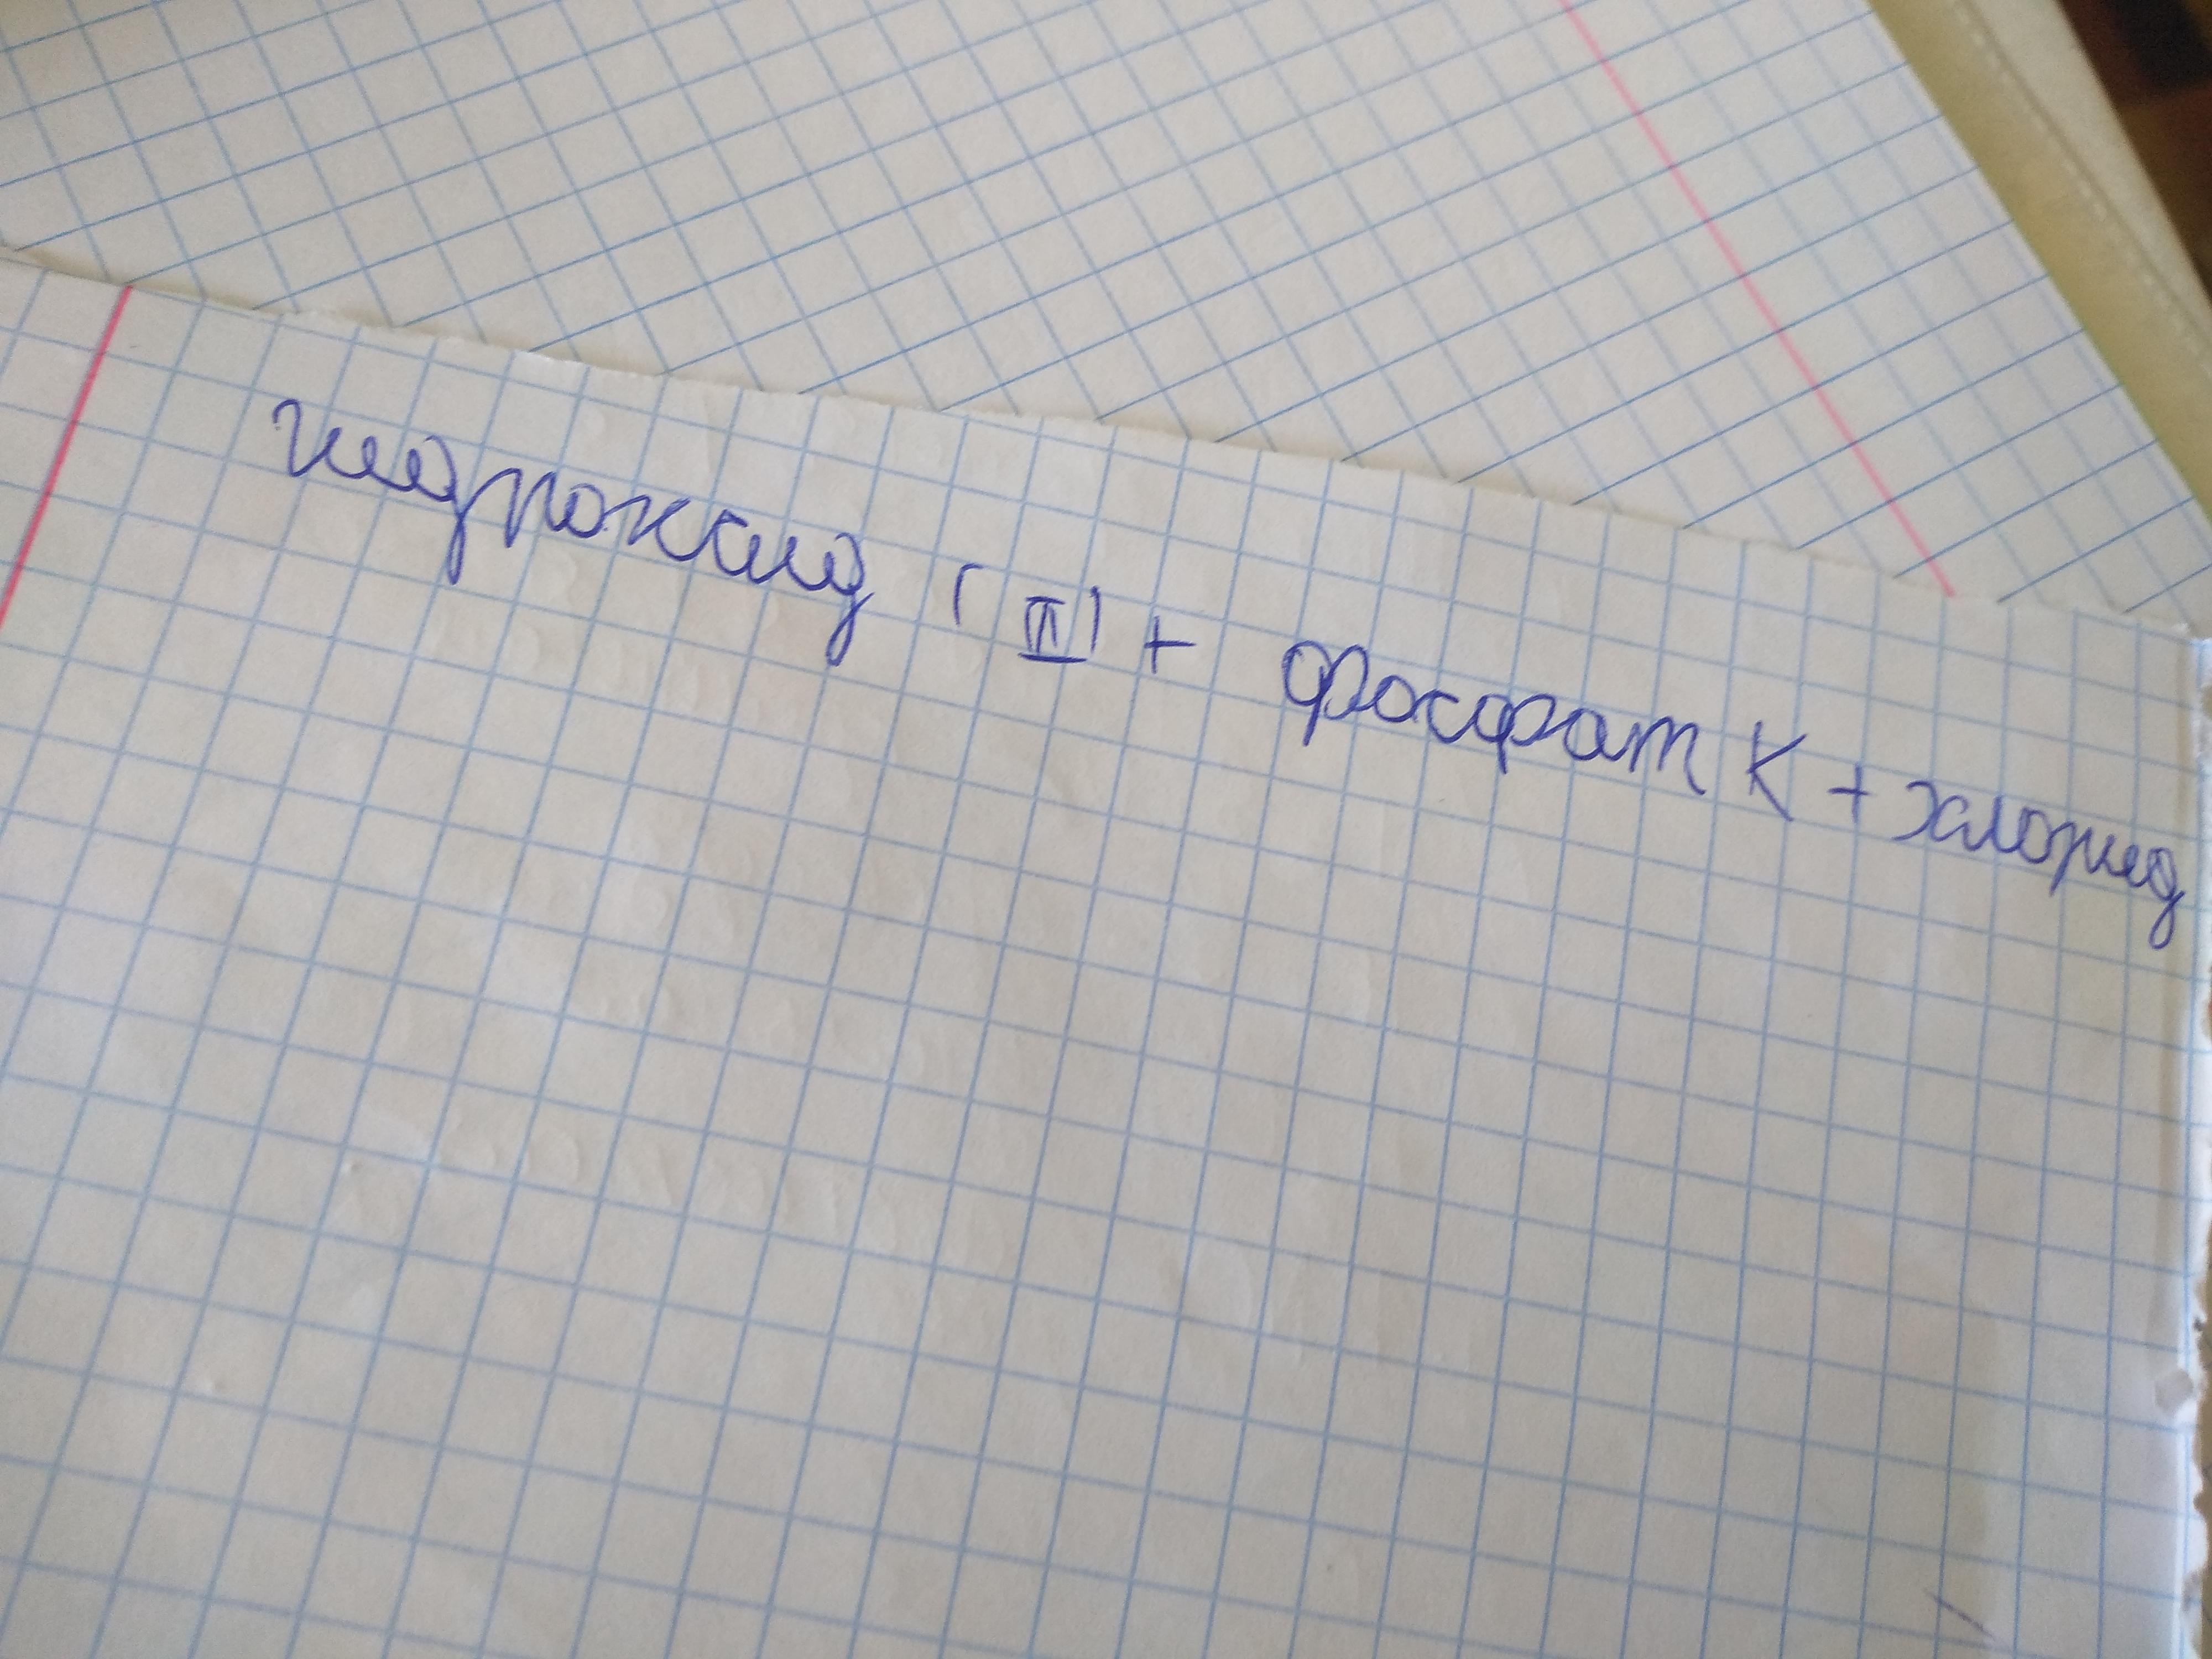 гидроксид (II) + фосфат K + хлорид